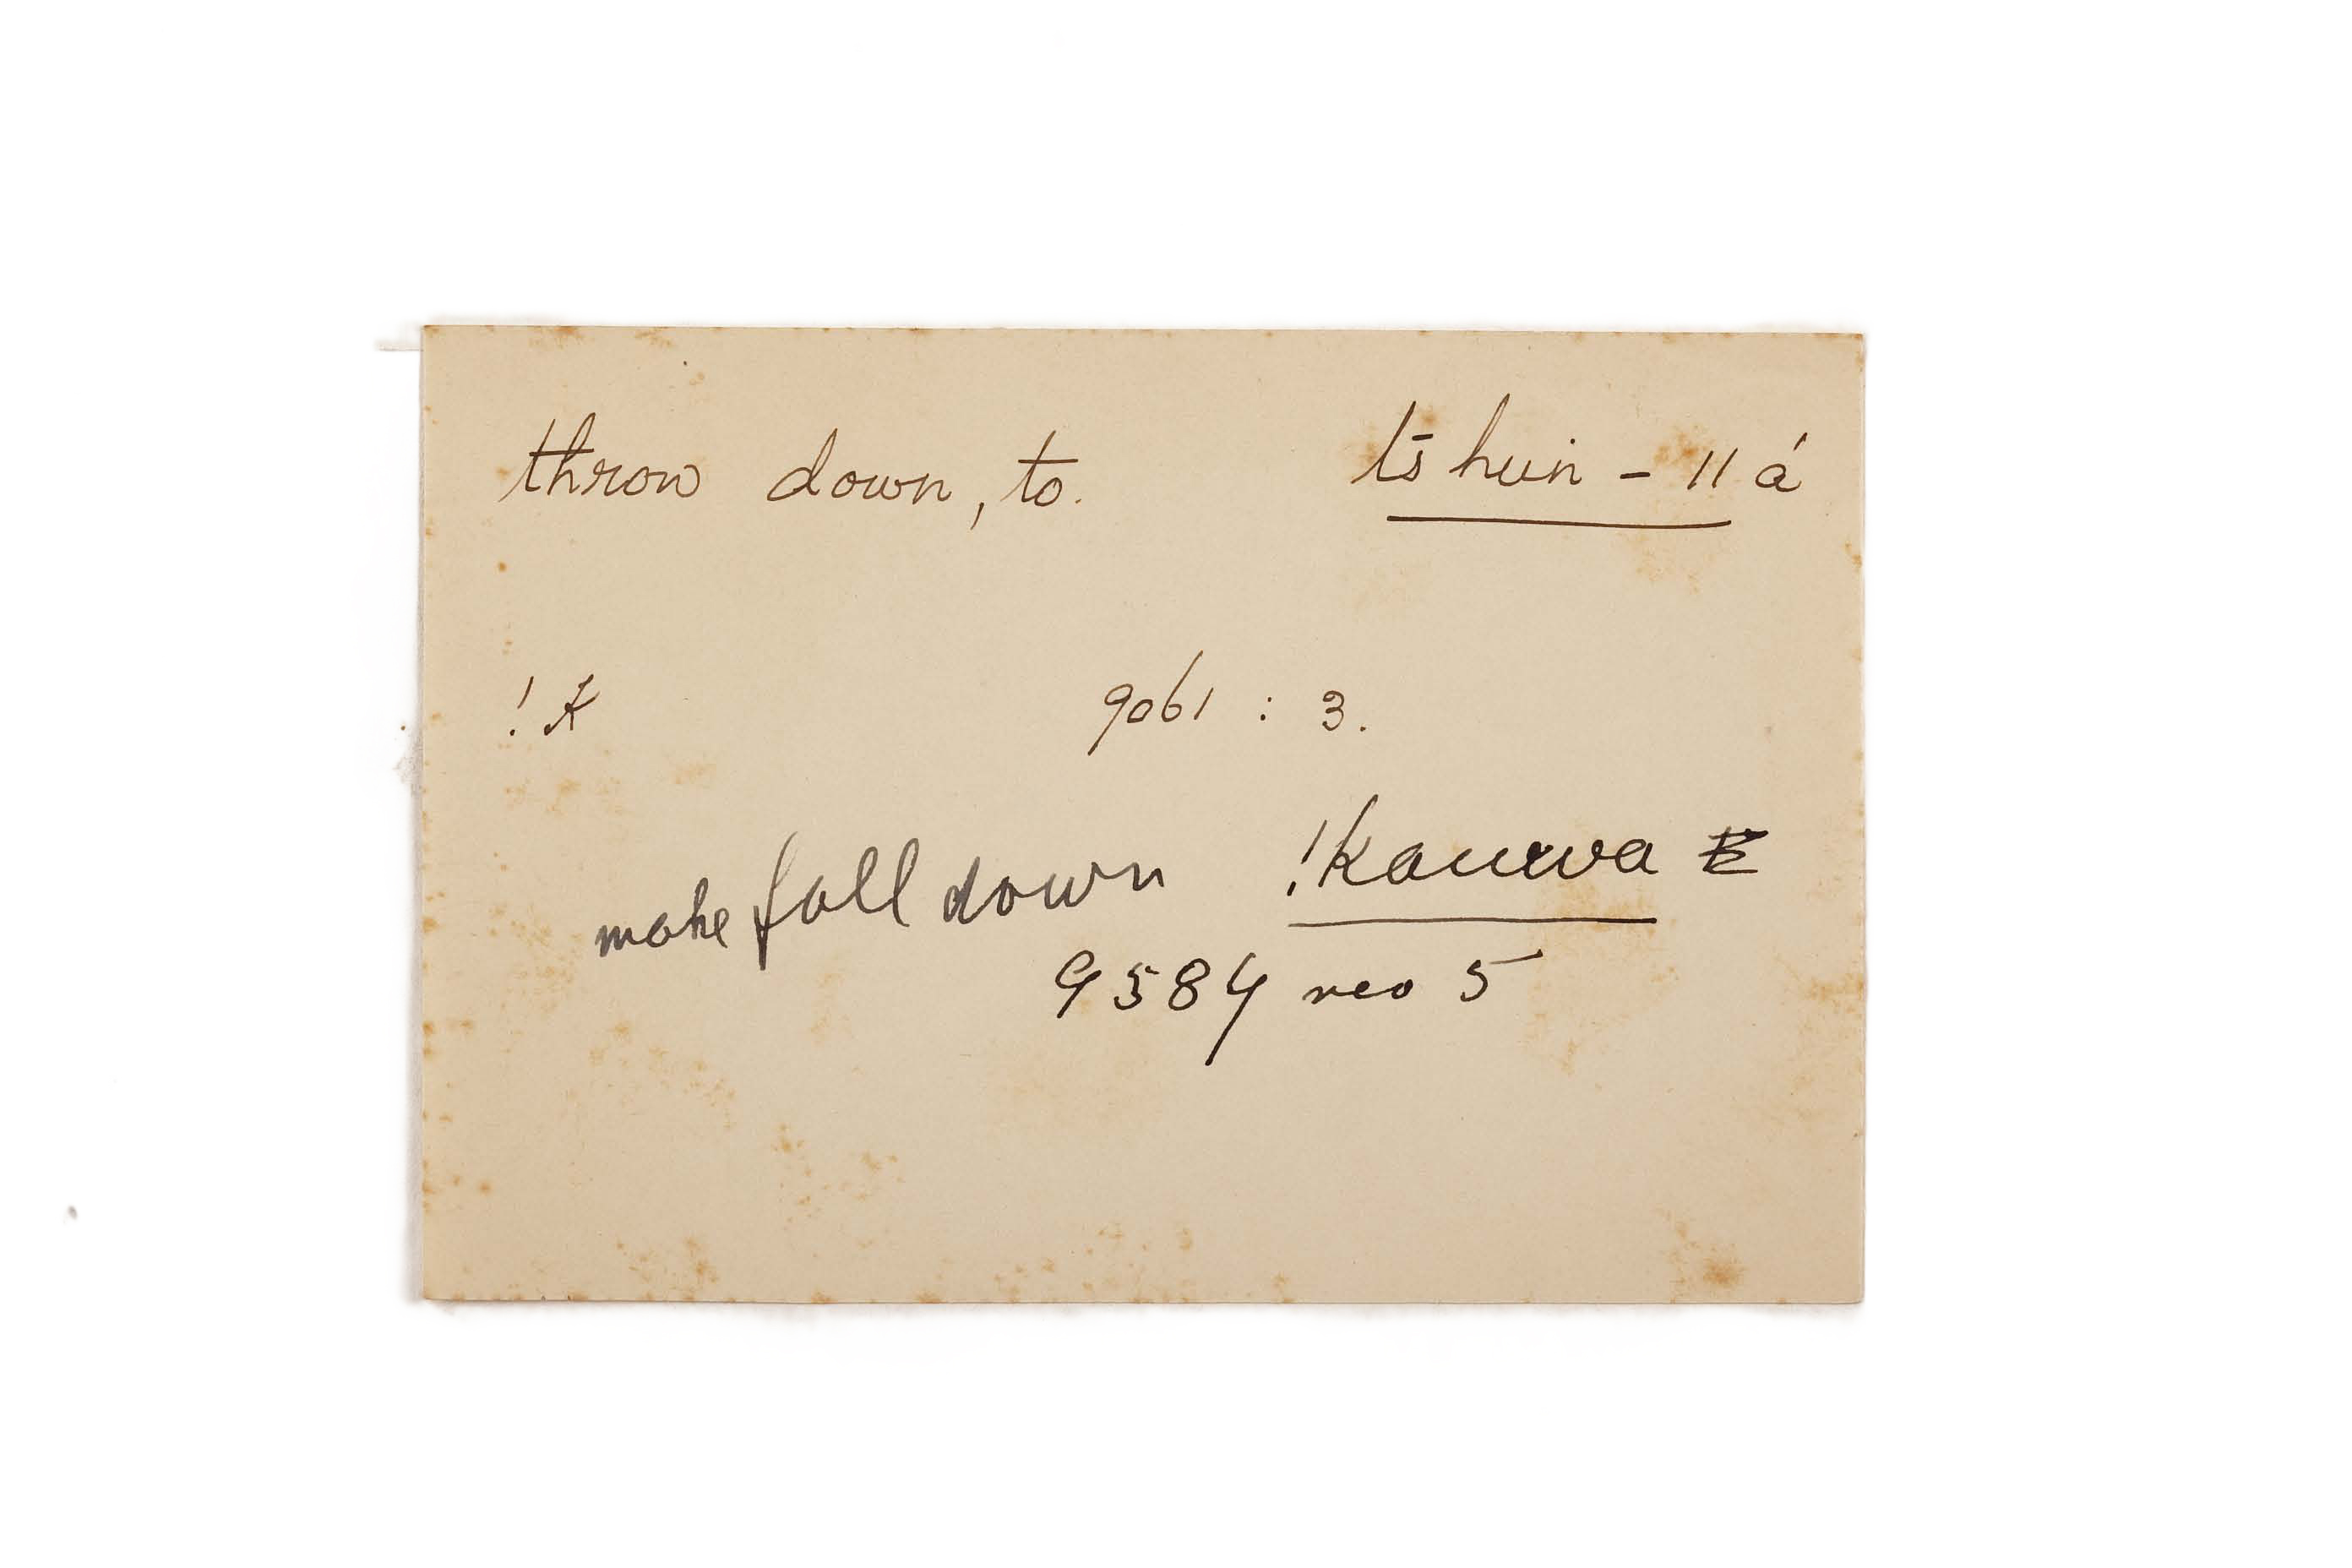 throw down, to. ts̄ huin - 11 á
! K 9061 : 3.
make fall down !kauwa
9584 reo 5